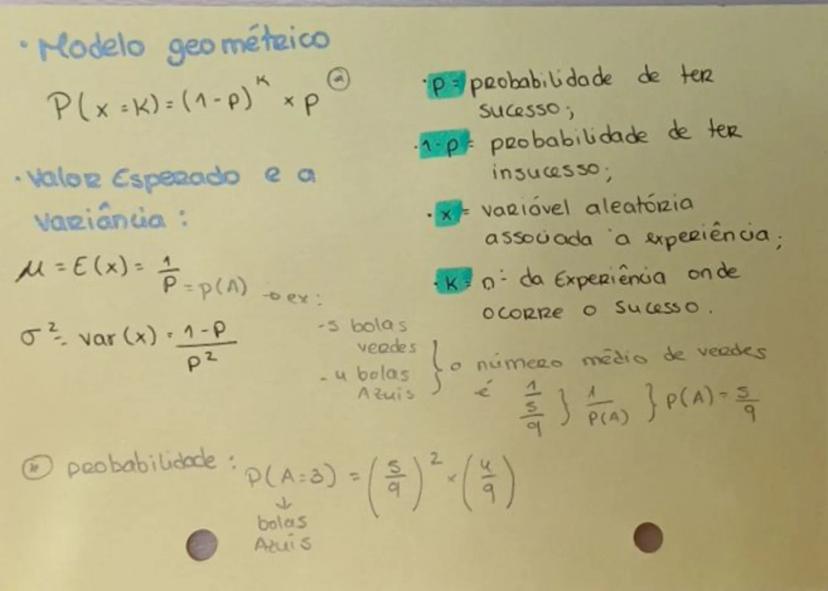 • Modelo geométrico
P(x=k)=(1-p)^k × p (*)
• Valor Esperado e a
Variância:
μ = E(x) = 1/p = p(A) → ex:
σ² = var(x) = (1-p)/p²
• p = probabilidade de ter
sucesso;
• 1-p = probabilidade de ter
insucesso;
• x = variável aleatória
associada à experiência;
• k = nº da Experiência onde
ocorre o sucesso.
-5 bolas
verdes
-4 bolas
Azuis
} o número médio de verdes
é 1/(5/9) } 1/P(A) } P(A) = 5/9
(*) probabilidade: P(A=3) = (5/9)² × (4/9)
↓
bolas
Azuis